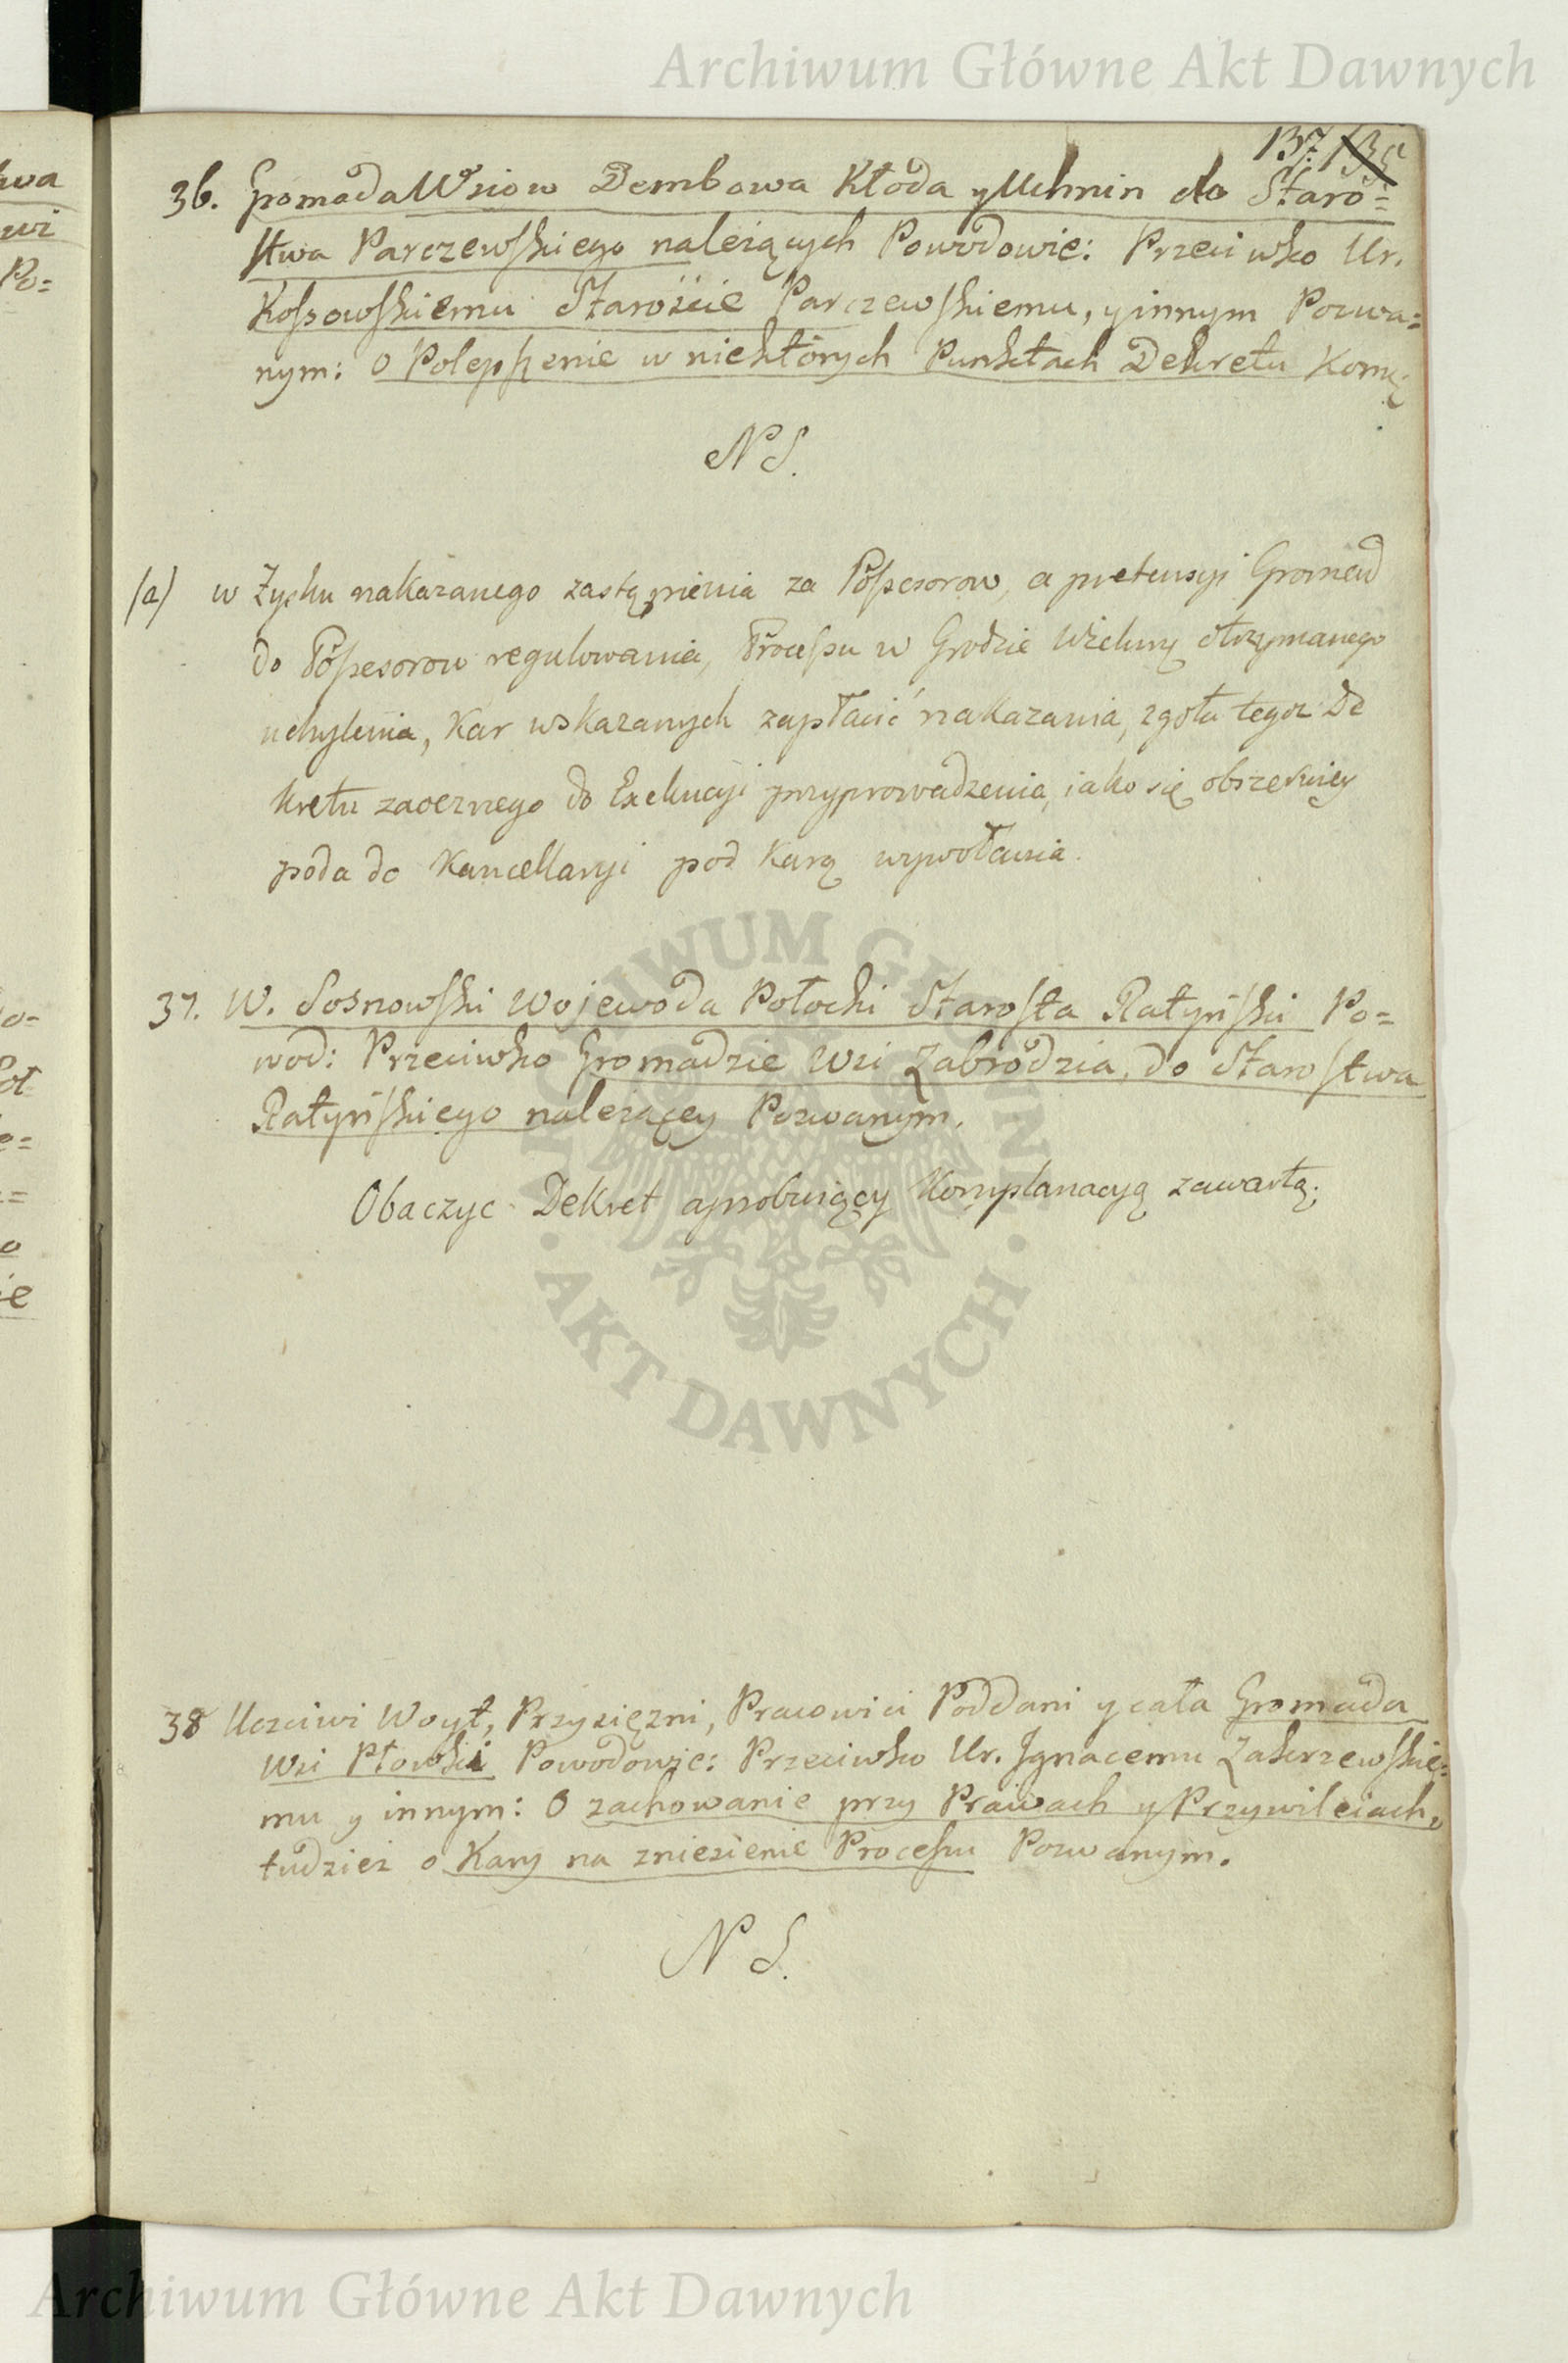 Archiwum Główne Akt Dawnych
137.
36. Gromada Wsiow Dembowa Kłoda y Uhnin do Staro=
stwa Parczewskiego należących Powodowie: Przeciwko Ur.
Kossowskiemu Starościę Parczewskiemu, y innym Pozwa=
nym: o Polepszenie w niektórych Punktach Dekretu Komis:
N S.
/a/ w Zysku nakazanego zastąpienia za Possesorow, a pretensyi Gromad
do Possesorow regulowania, Processu w Grodzie otrzymanego
uchylenia, Kar wskazanych zapłacić nakazania, zgoła tegoz De
kretu zaocznego do Exekucyi przyprowadzenia, iako się obszerniey
poda do Kancellaryi pod Karą wywołania.
37. W. Sosnowski Wojewoda Połocki Starosta Ratyński Po=
wod: Przeciwko Gromadzie Wsi Zabrodzia, do Starostwa
Ratyńskiego nalezącey Pozwanym.
Obaczyc Dekret aprobuiący Komplanacyą zawartą;
38 Uczciwi Woyt, Przysięzni, Pracowici Poddani y cała Gromada
Wsi Płowki Powodowie: Przeciwko Ur. Jgnacemu Zakrzewskie=
mu y innym: O zachowanie przy Prawach y Przywileiach,
tudziez o Kary na zniesienie Processu Pozwanym.
N S.
ARCHIWUM GŁÓWNE
· AKT DAWNYCH ·
Archiwum Główne Akt Dawnych